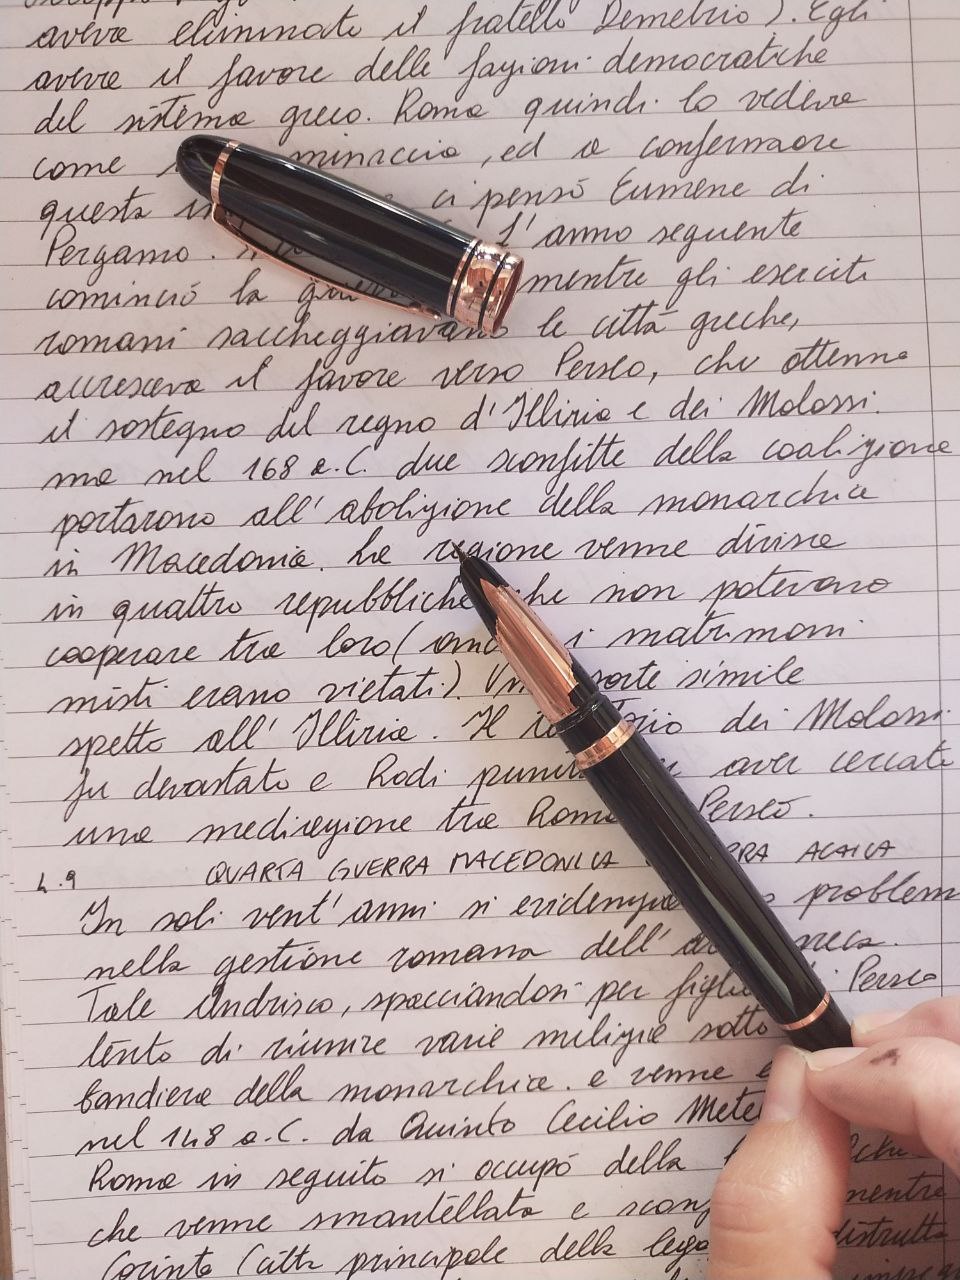 aveva eliminato il fratello Demetrio). Egli
aveva il favore delle fazioni democratiche
del sistema greco. Roma quindi lo vedeva
come minaccia, ed a confermare
questa ci pensò Eumene di
Pergamo. l'anno seguente
cominciò la mentre gli eserciti
romani saccheggiavano le città greche,
accresceva il favore verso Perseo, che ottenne
il sostegno del regno d'Illiria e dei Molossi.
ma nel 168 a.C. due sconfitte della coalizione
portarono all'abolizione della monarchia
in Macedonia. La regione venne divisa
in quattro repubbliche che non potevano
cooperare tra loro ( i matrimoni
misti erano vietati). sorte simile
spettò all'Illiria. Il dei Molossi
fu devastato e Rodi aver cercato
una mediazione tra Roma Perseo.
4.9 QUARTA GUERRA MACEDONICA ACAICA
In soli vent'anni si
nella gestione romana dell'
Tale Andrisco, spacciandosi per Perseo
tentò di riunire varie milizie sotto
bandiera della monarchia. e venne
nel 148 a.C. da Quinto Cecilio
Roma in seguito si occupò della
che venne smantellata e mentre
Corinto (città principale della lega distrutta